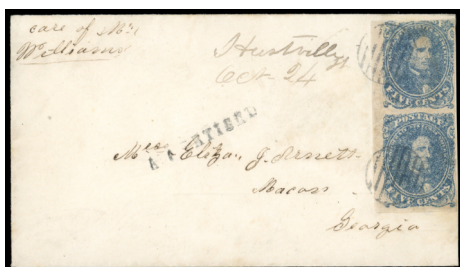 care of Mrs
Williams
Huntsville
Oct 24
ADVERTISED
Mrs Eliza J.
Macon
Georgia
POSTAGE
FIVE CENTS
POSTAGE
FIVE CENTS